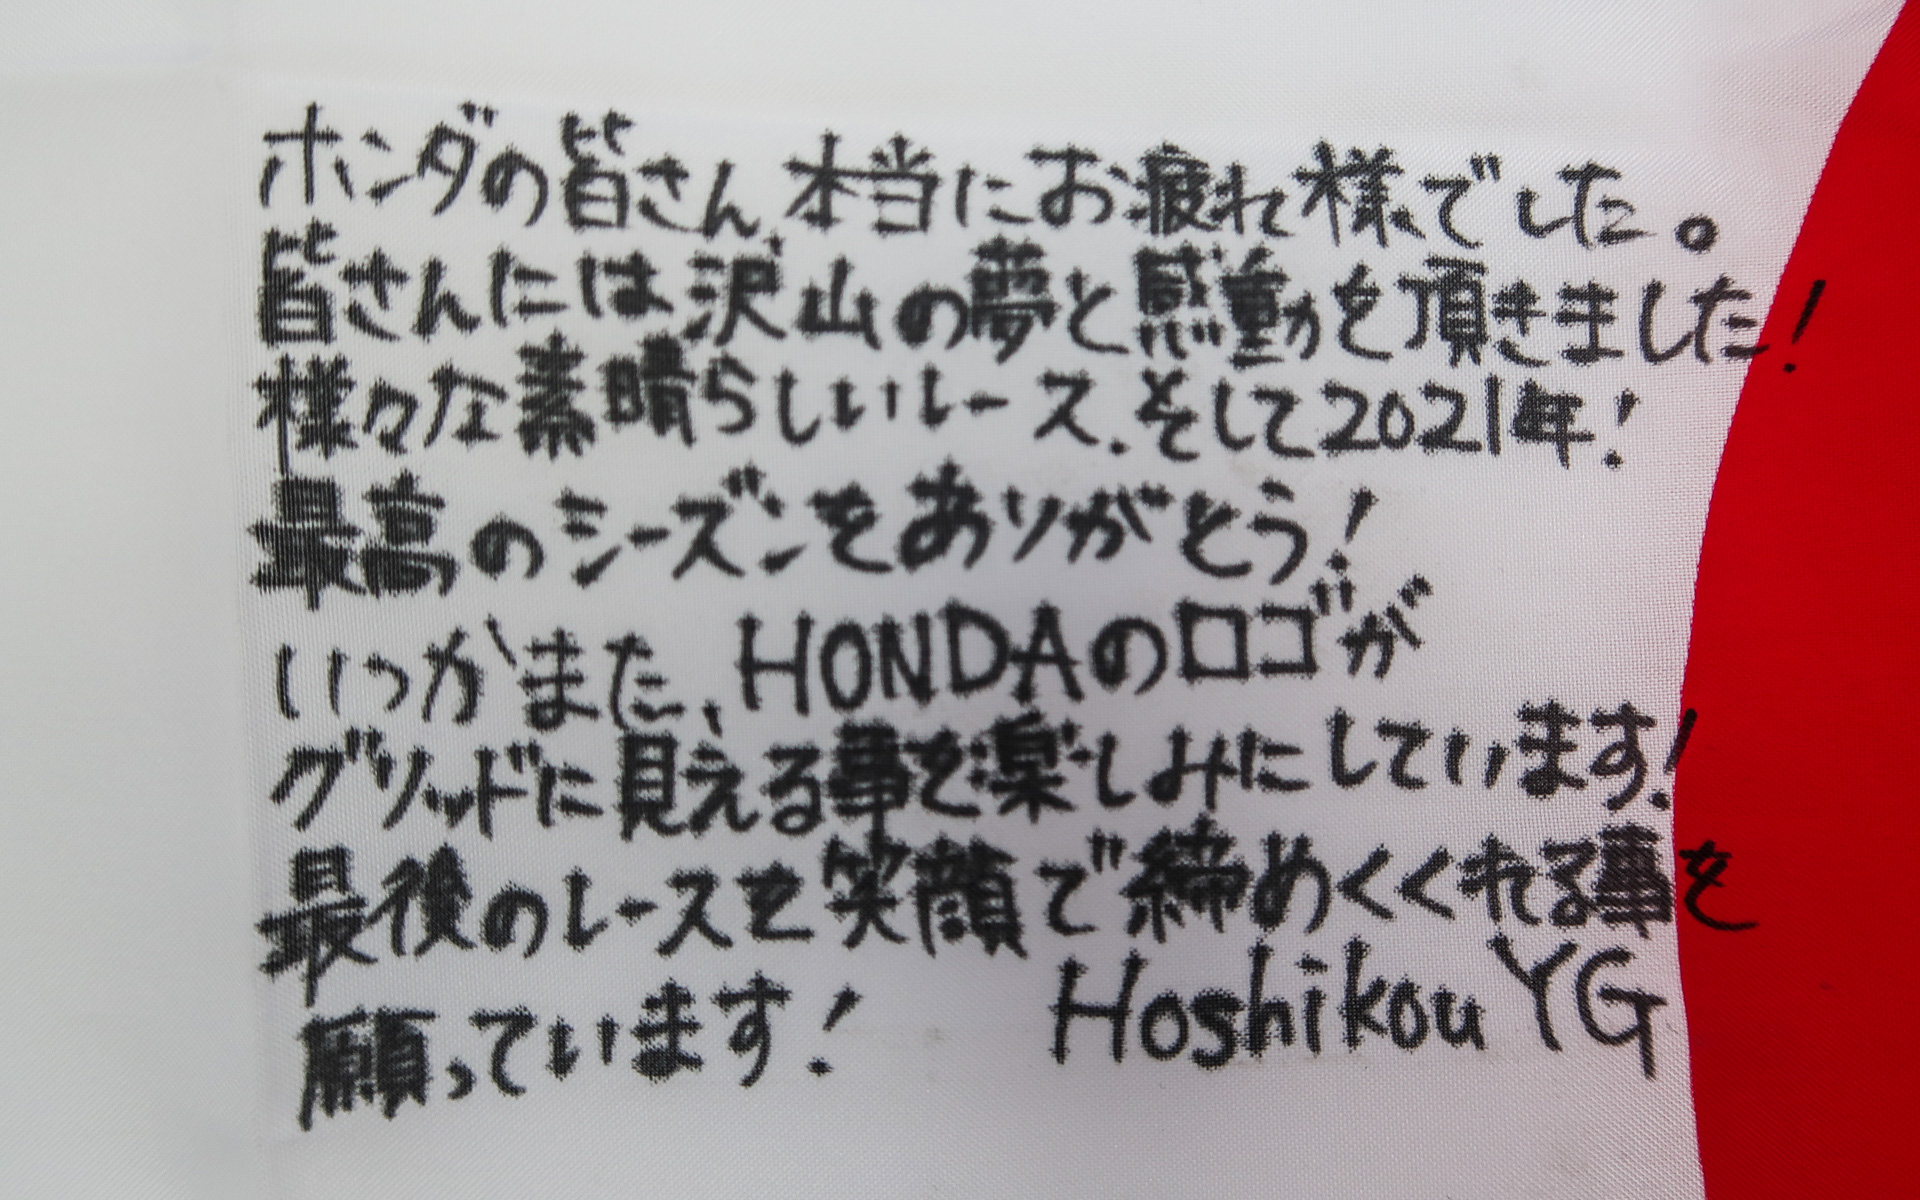 ホンダの皆さん、本当にお疲れ様でした。
皆さんには沢山の夢と感動を頂きました!
様々な素晴らしいレース、そして2021年!
最高のシーズンをありがとう!
いつかまた、HONDAのロゴが
グリッドに見える事を楽しみにしています!
最後のレースを笑顔で締めくくれる事を
願っています! Hoshikou YG